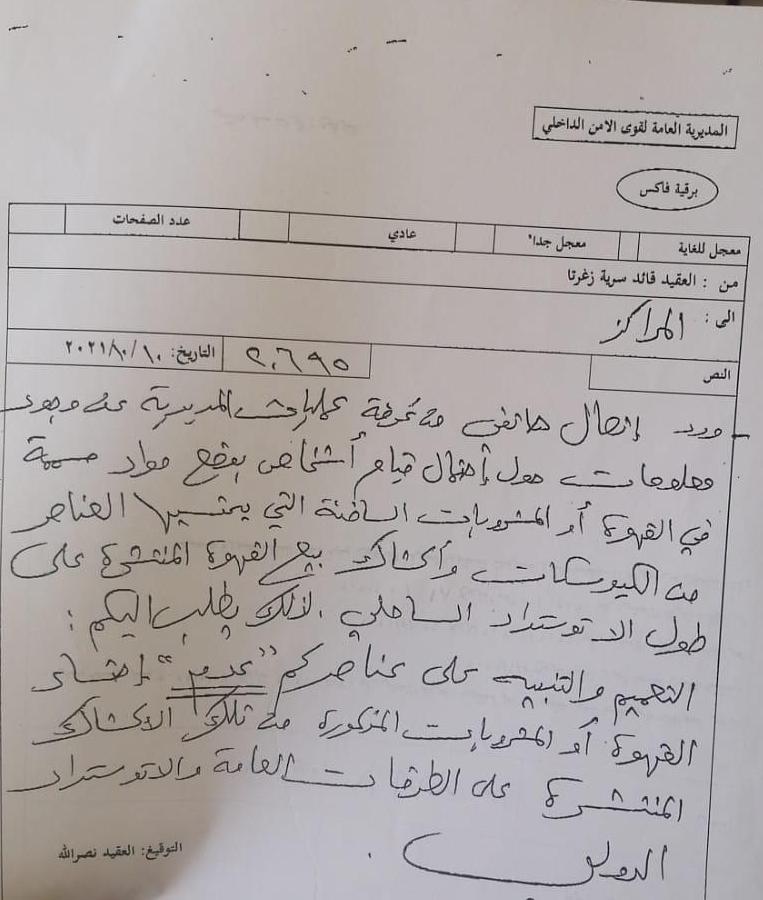 المديرية العامة لقوى الامن الداخلي
برقية فاكس
معجل للغاية معجل جدا" عادي عدد الصفحات
من : العقيد قائد سرية زغرتا
الى : المراكز
النص ٢٠٦٩٥ التاريخ: ٢٠٢١/١٠/١٠
- ورد إتصال هاتفي من غرفة عمليات المديرية عن وجود
معلومات حول إحتمال قيام أشخاص بوضع مواد سمية
في القهوة أو المشروبات الساخنة التي يحتسيها العناصر
من الكيوسكات وأكشاك بيع القهوة المنتشرة على
طول الاتوستراد الساحلي . لذلك يطلب اليكم :
التعميم والتنبيه على عناصركم "عدم" إحتساء
القهوة أو المشروبات المذكورة من تلك الاكشاك
المنتشرة على الطرقات العامة والاتوستراد
الدولي .
التوقيع: العقيد نصرالله